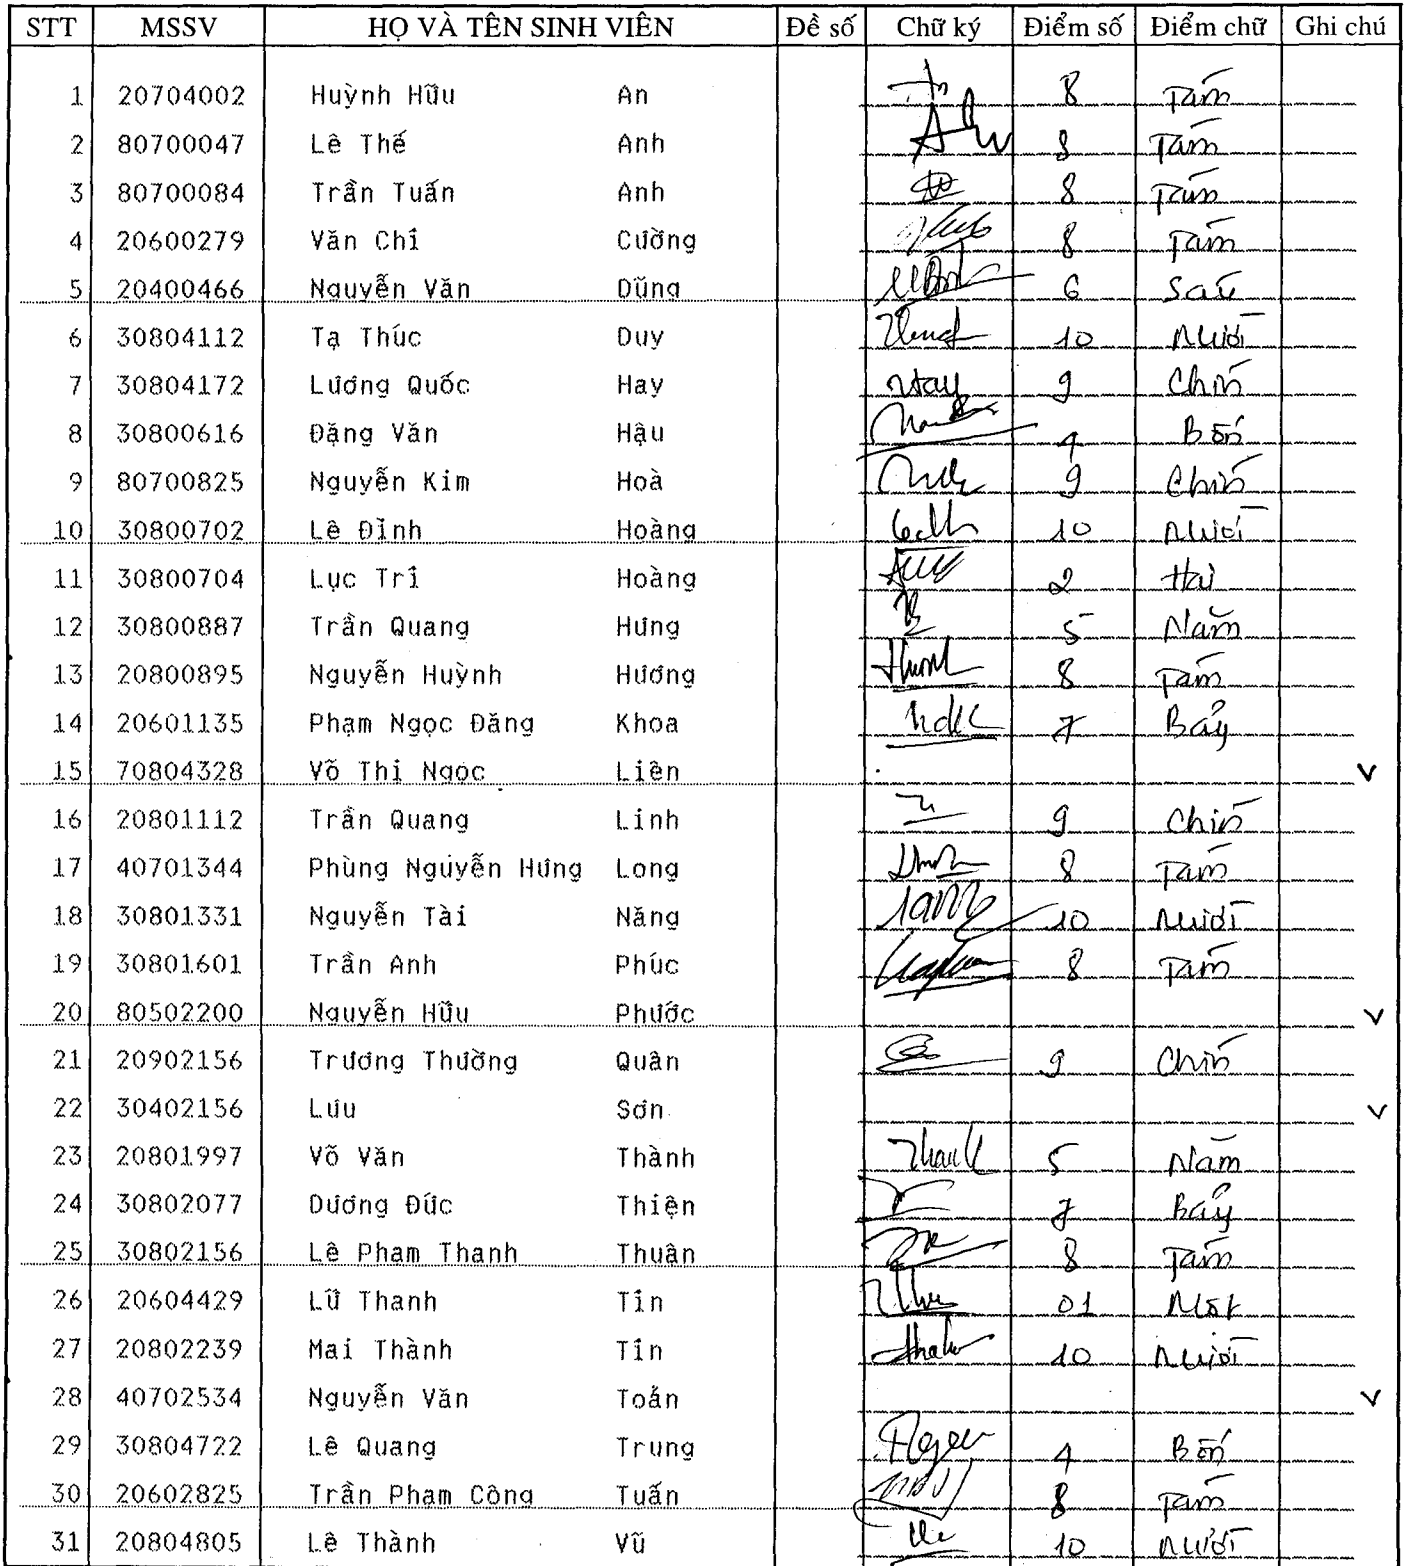 STT MSSV HỌ VÀ TÊN SINH VIÊN Đề số Chữ ký Điểm số Điểm chữ Ghi chú
1 20704002 Huỳnh Hữu An 8 Tám
2 80700047 Lê Thế Anh 8 Tám
3 80700084 Trần Tuấn Anh 8 Tám
4 20600279 Văn Chí Cường 8 Tám
5 20400466 Nguyễn Văn Dũng 6 Sáu
6 30804112 Tạ Thúc Duy 10 Mười
7 30804172 Lương Quốc Hay Hay 9 Chín
8 30800616 Đặng Văn Hậu 4 Bốn
9 80700825 Nguyễn Kim Hoà 9 Chín
10 30800702 Lê Đình Hoàng 10 Mười
11 30800704 Lục Trí Hoàng 2 Hai
12 30800887 Trần Quang Hưng 5 Năm
13 20800895 Nguyễn Huỳnh Hương 8 Tám
14 20601135 Phạm Ngọc Đăng Khoa 7 Bảy
15 70804328 Võ Thị Ngọc Liên v
16 20801112 Trần Quang Linh 9 Chín
17 40701344 Phùng Nguyễn Hưng Long 8 Tám
18 30801331 Nguyễn Tài Năng 10 Mười
19 30801601 Trần Anh Phúc 8 Tám
20 80502200 Nguyễn Hữu Phước v
21 20902156 Trương Thường Quân 9 Chín
22 30402156 Lưu Sơn v
23 20801997 Võ Văn Thành 5 Năm
24 30802077 Dương Đức Thiện 7 Bảy
25 30802156 Lê Phạm Thanh Thuận 8 Tám
26 20604429 Lữ Thanh Tín 01 Một
27 20802239 Mai Thành Tín 10 Mười
28 40702534 Nguyễn Văn Toản v
29 30804722 Lê Quang Trung 4 Bốn
30 20602825 Trần Phạm Công Tuấn 8 Tám
31 20804805 Lê Thành Vũ 10 Mười